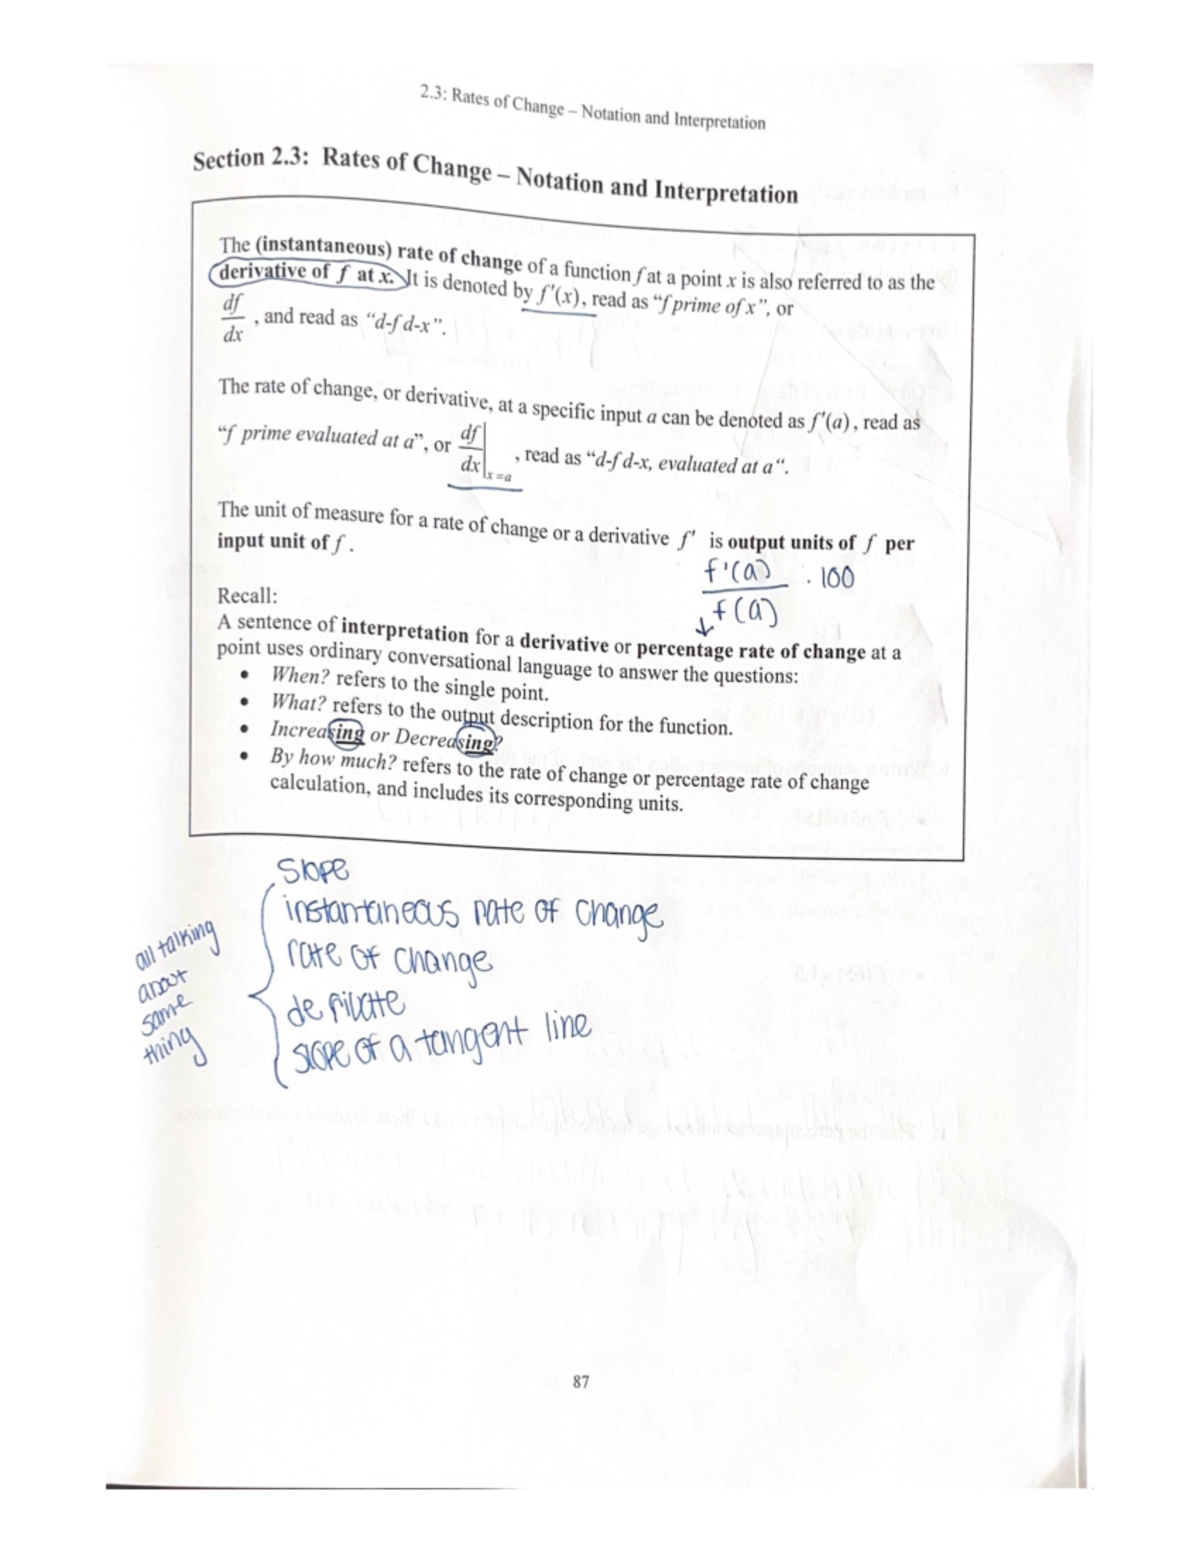 2.3: Rates of Change – Notation and Interpretation
Section 2.3: Rates of Change – Notation and Interpretation
The (instantaneous) rate of change of a function f at a point x is also referred to as the
derivative of f at x. It is denoted by f'(x), read as “f prime of x”, or
df/dx , and read as “d-f d-x”.
The rate of change, or derivative, at a specific input a can be denoted as f'(a), read as
“f prime evaluated at a”, or df/dx|x=a , read as “d-f d-x, evaluated at a“.
The unit of measure for a rate of change or a derivative f' is output units of f per
input unit of f .
f'(a)/f(a) · 100
Recall:
A sentence of interpretation for a derivative or percentage rate of change at a
point uses ordinary conversational language to answer the questions:
• When? refers to the single point.
• What? refers to the output description for the function.
• Increasing or Decreasing?
• By how much? refers to the rate of change or percentage rate of change
calculation, and includes its corresponding units.
slope
instantaneous rate of change
rate of change
slope of a tangent line
all talking
about
same
thing
87